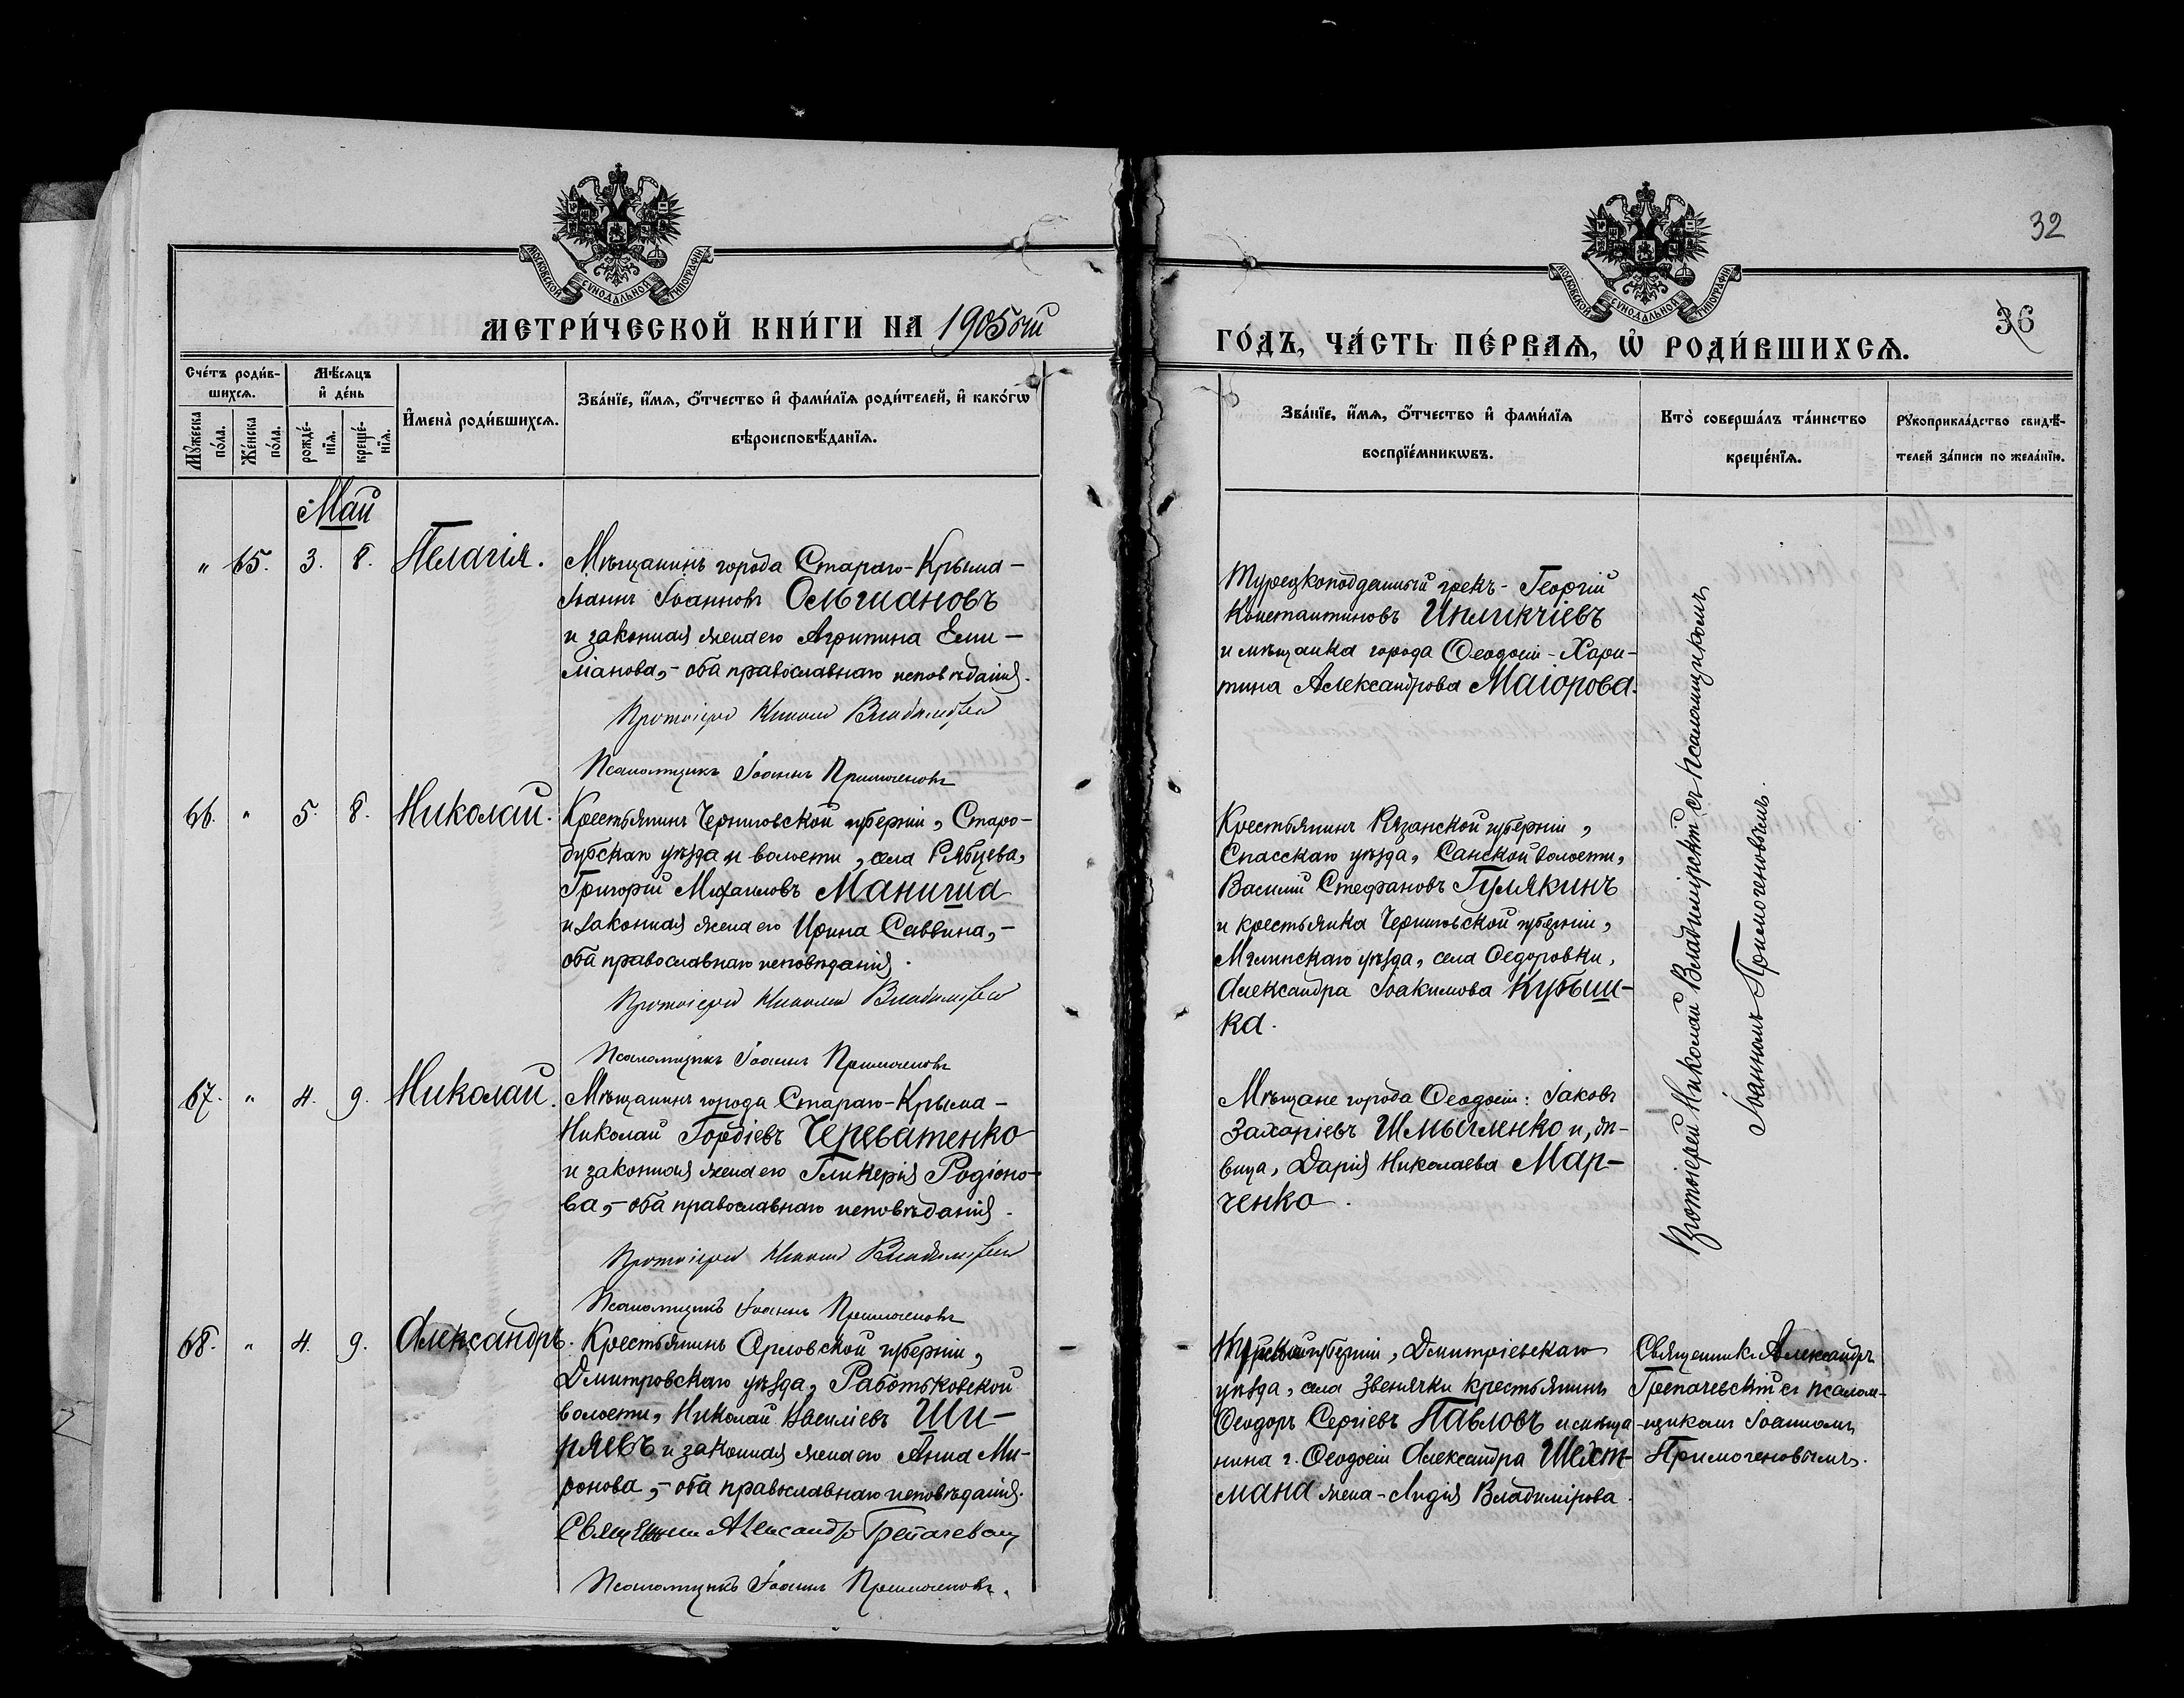 32
36
МОСКОВСКОЙ СУНОДАЛЬНОЙ ТИПОГРАФІИ
МЕТРИ́ЧЕСКОЙ КНИ́ГИ НА 1905ый
МОСКОВСКОЙ СУНОДАЛЬНОЙ ТИПОГРАФІИ
ГО́ДЪ, ЧА́СТЬ ПЕ́РВАѦ, Ѽ РОДИ́ВШИХСѦ.
Сче́тъ роди́в-
шихсѧ.
Мꙋ́жеска по́ла.
Же́нска по́ла.
Мѣ́сѧцъ
и҆ де́нь
рожде́-
нїѧ.
креще́-
нїѧ.
И҆мена̀ роди́вшихсѧ.
Зва́нїе, и҆́мѧ, ѻ҆́тчество и҆ фами́лїѧ роди́телей, и҆ како́гѡ
вѣроисповѣ́данїѧ.
Зва́нїе, и҆́мѧ, ѻ҆́тчество и҆ фами́лїѧ
воспрїе́мникѡвъ.
Кто̀ соверша́лъ та́инство
креще́нїѧ.
Рꙋкоприкла́дство свидѣ́-
телей за́писи по жела́нїю.
Май
" 65. 3. 8. Пелагія.
Мѣщанинъ города Стараго-Крыма -
Іоаннъ Іоанновъ Ольшановъ
и законная жена его Агрипина Еми-
ліанова, - оба православнаго исповѣданія.
Протоіерей Николай Владимірскій
Псаломщикъ Іоаннъ Примогеновъ
Турецкоподданный грекъ - Георгій
Константиновъ Ипликчіевъ
и мѣщанка города Ѳеодосіи - Хари-
тина Александрова Маіорова.
Протоіерей Николай Владимірскій съ псаломщикомъ
Іоанномъ Примогеновымъ.
66. " 5. 8. Николай.
Крестьянинъ Черниговской губерніи, Старо-
дубскаго уѣзда и волости, села Рябцева,
Григорій Михаиловъ Манишa
и законная жена его Ирина Саввина, -
оба православнаго исповѣданія.
Протоіерей Николай Владимірскій
Псаломщикъ Іоаннъ Примогеновъ
Крестьянинъ Рязанской губерніи,
Спасскаго уѣзда, Санской волости,
Василій Стефановъ Гулякинъ
и крестьянка Черниговской губерніи,
Мглинскаго уѣзда, села Ѳедоровки,
Александра Іоакимова Кубыш-
ка.
67. " 4. 9. Николай.
Мѣщанинъ города Стараго-Крыма -
Николай Гордіевъ Череватенко
и законная жена его Гликерія Родіоно-
ва, - оба православнаго исповѣданія.
Протоіерей Николай Владимірскій
Псаломщикъ Іоаннъ Примогеновъ
Мѣщане города Ѳеодосіи: Іаковъ
Захаріевъ Шмыгленко и, дѣ-
вица, Дарія Николаева Мар-
ченко.
68. " 4. 9. Александръ.
Крестьянинъ Орловской губерніи,
Дмитровскаго уѣзда, Работьковской
волости, Николай Василіевъ Ши-
ряевъ и законная жена его Анна Ми-
ронова, - оба православнаго исповѣданія.
Священникъ Александръ Грепачевскій
Псаломщикъ Іоаннъ Примогеновъ.
Курской губерніи, Дмитріевскаго
уѣзда, села Звенячки крестьянинъ
Ѳеодоръ Сергіевъ Павловъ и мѣща-
нина г. Ѳеодосіи Александра Шест-
мана жена - Лидія Владимірова.
Священникъ Александръ
Грепачевскій съ псалом-
щикомъ Іоанномъ
Примогеновымъ.